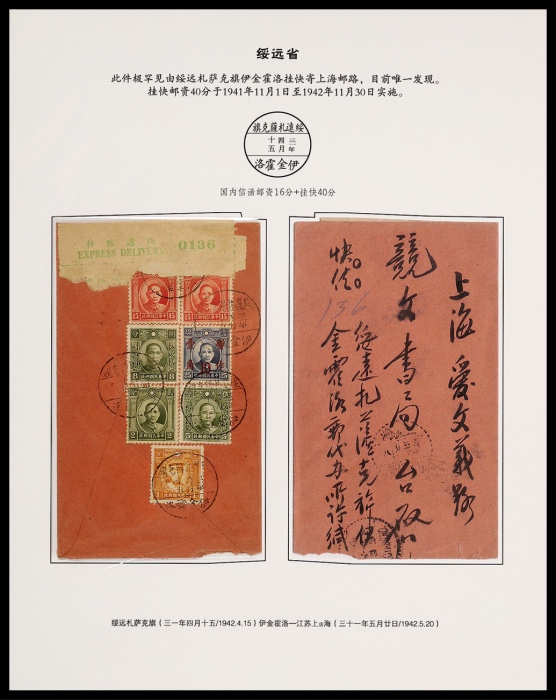 绥远省
此件极罕见由绥远札萨克旗伊金霍洛挂快寄上海邮路，目前唯一发现。
挂快邮资40分于1941年11月1日至1942年11月30日实施。
綏遠札薩克旗
三十四
年 五月
伊金霍洛
国内信函邮资16分+挂快40分
快遞郵件
EXPRESS DELIVERY
0136
15 15
8 25
2 5
1
上海愛文義路
競文書局台啟
綏遠札薩克旂伊
金霍洛郵代办所許緘
快信
136
绥远札萨克旗（三一年四月十五/1942.4.15）伊金霍洛—江苏上海（三十一年五月廿日/1942.5.20）